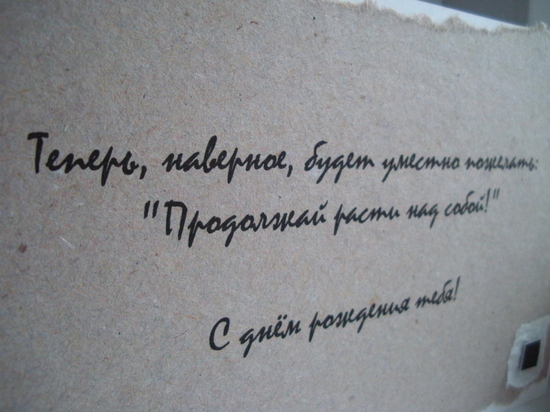 Теперь, наверное, будет уместно пожелать:
"Продолжай расти над собой!"
С днём рождения тебя!